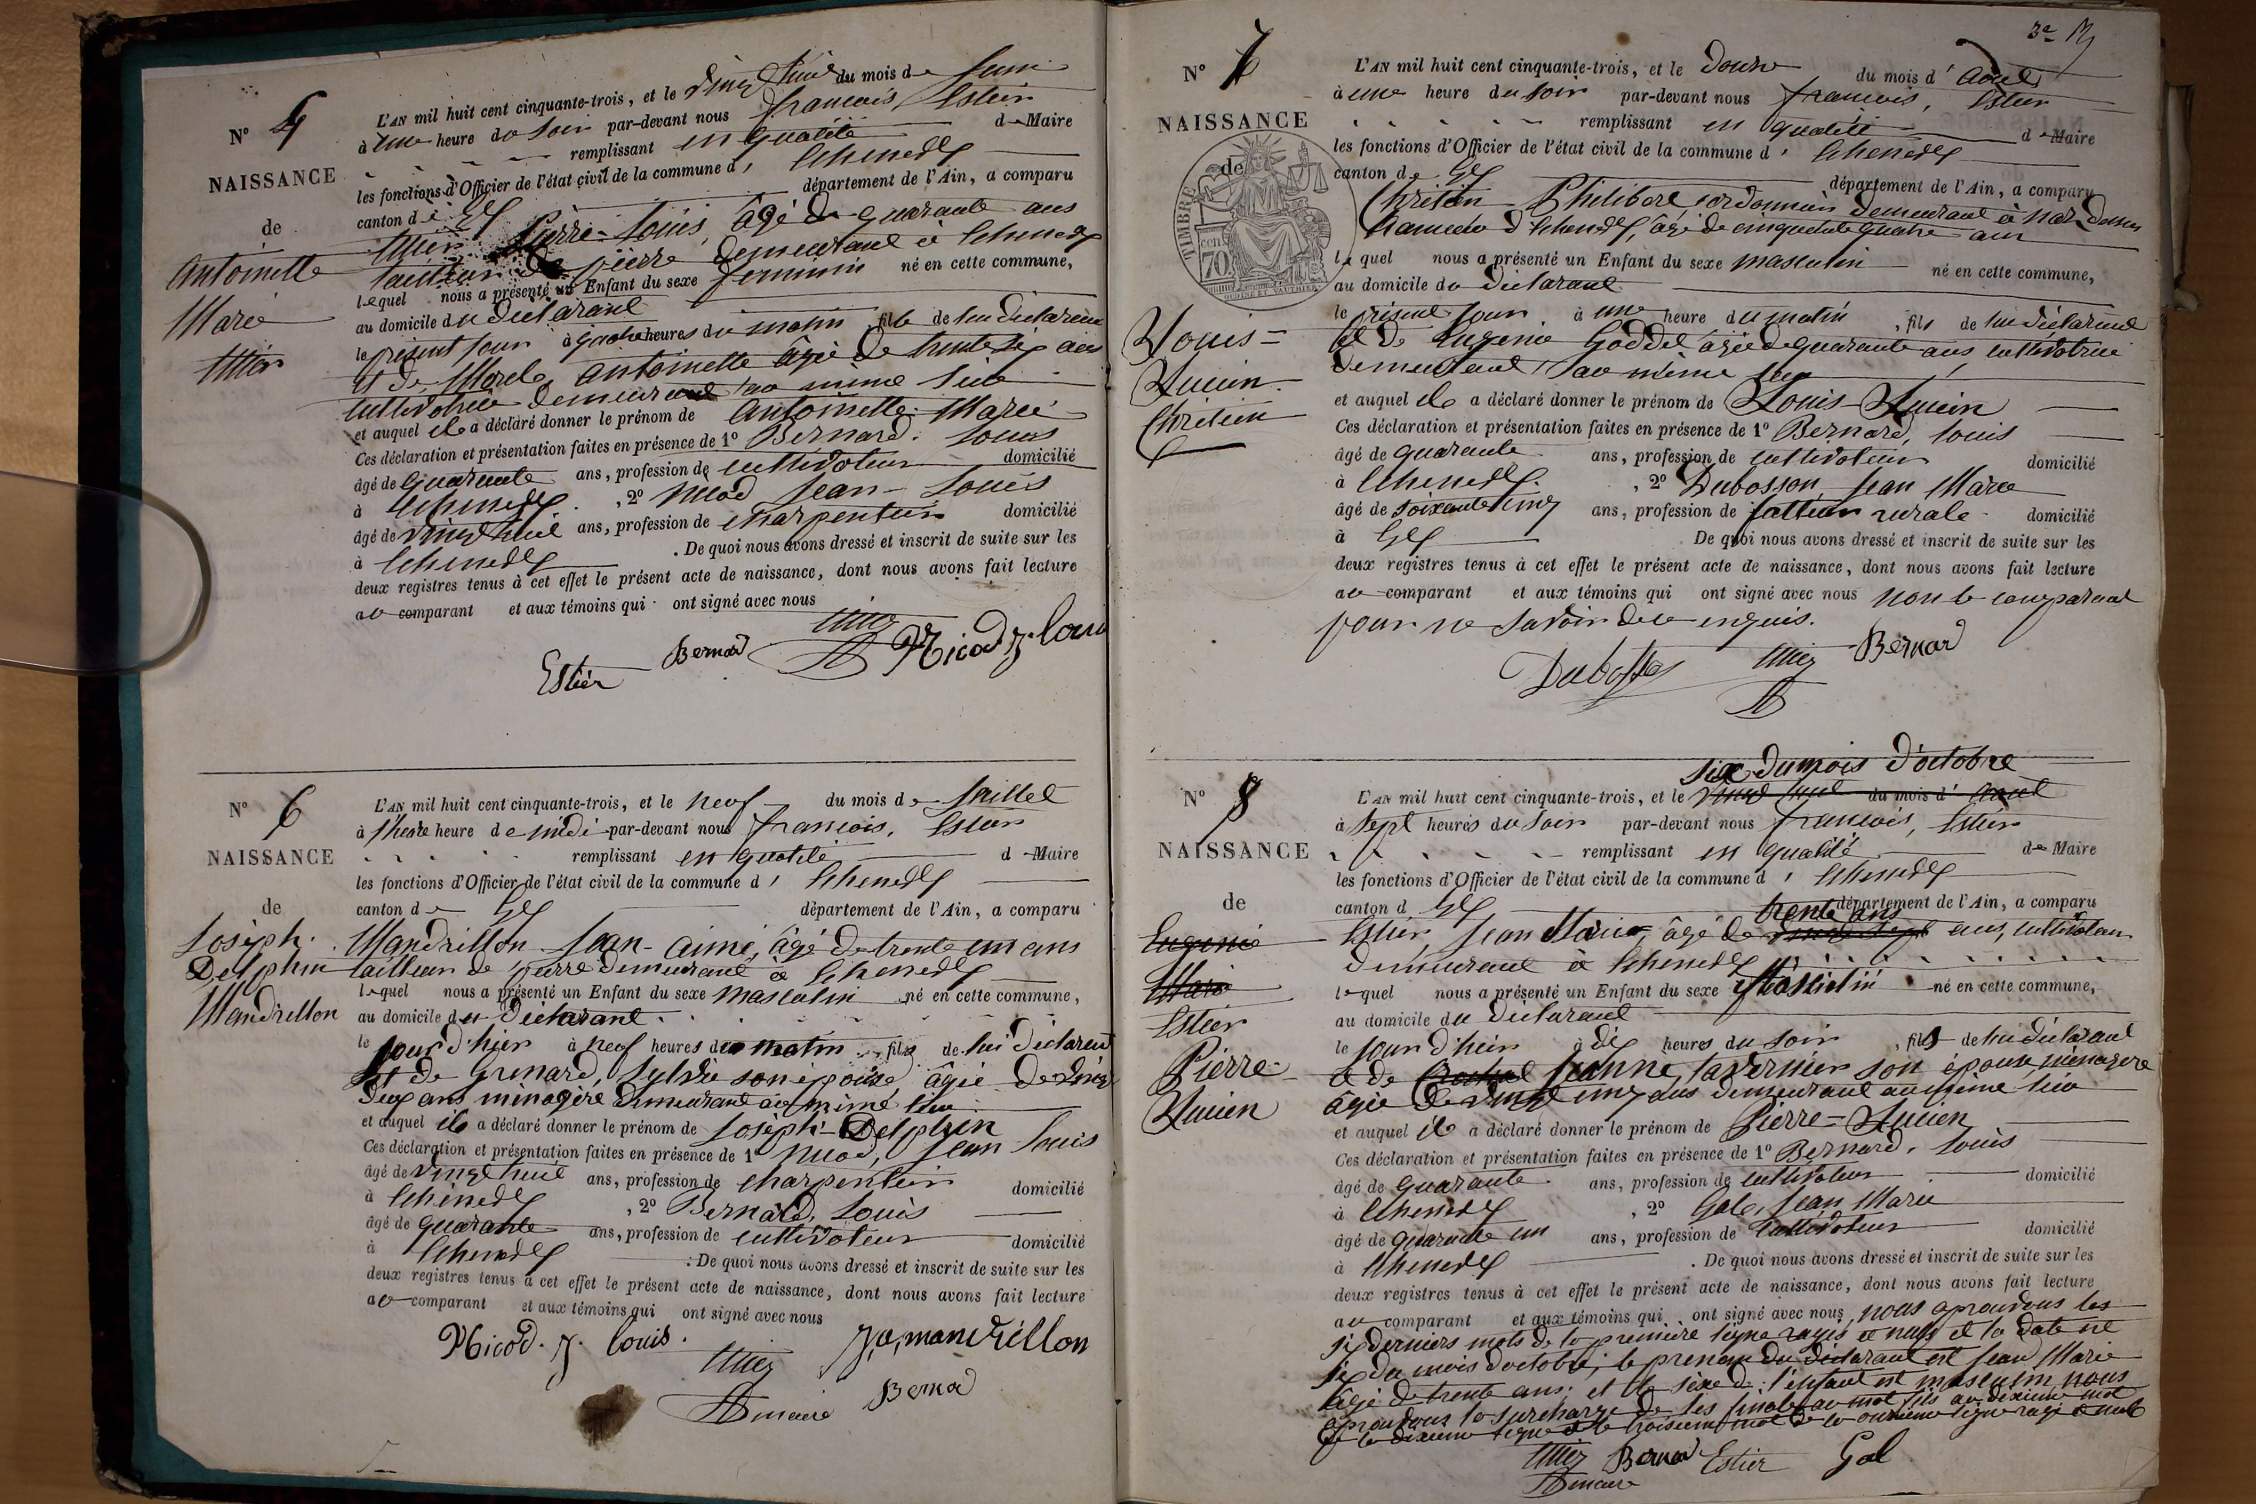 N° 4
NAISSANCE
de
Antoinette
Marie
L'AN mil huit cent cinquante-trois, et le du mois de Juin
à une heure du soir par-devant nous françois, Estier
remplissant en qualité de Maire
les fonctions d'Officier de l'état civil de la commune d' Echenevex
canton de Gex département de l'Ain, a comparu
Pierre-Louis, âgé de quarante ans
tailleur de pierre demeurant à Echenevex
lequel nous a présenté un Enfant du sexe feminin né en cette commune,
au domicile du déclarant
le présent jour à quatre heures du matin, fille de lui déclarant
et de Morel, Antoinette âgée de trente six ans
cultivatrice demeurant au même lieu
et auquel il a déclaré donner le prénom de Antoinette-Marie
Ces déclaration et présentation faites en présence de 1° Bernard, Louis
âgé de quarante ans, profession de cultivateur domicilié
à Echenevex, 2° Nicod Jean-Louis
âgé de vingt huit ans, profession de charpentier domicilié
à Echenevex. De quoi nous avons dressé et inscrit de suite sur les
deux registres tenus à cet effet le présent acte de naissance, dont nous avons fait lecture
au comparant et aux témoins qui ont signé avec nous
Estier Bernard Nicod J. Louis
N° 6
NAISSANCE
de
Joseph
Delphin
Mandrillon
L'AN mil huit cent cinquante-trois, et le neuf du mois de Juillet
à l'heure heure de midi par-devant nous françois, Estier
remplissant en qualité de Maire
les fonctions d'Officier de l'état civil de la commune d' Echenevex
canton de Gex département de l'Ain, a comparu
Mandrillon Jean-aimé, âgé de trente un ans
tailleur de pierre demeurant à Echenevex
lequel nous a présenté un Enfant du sexe masculin né en cette commune,
au domicile du déclarant
le jour d'hier à neuf heures du matin, fils de lui déclarant
et de Grenard, Sylvie son épouse âgée de vingt
deux ans ménagère demeurant au même lieu
et auquel il a déclaré donner le prénom de Joseph-Delphin
Ces déclaration et présentation faites en présence de 1° Nicod, Jean Louis
âgé de vingt huit ans, profession de charpentier domicilié
à Echenevex, 2° Bernard, Louis
âgé de quarante ans, profession de cultivateur domicilié
à Echenevex. De quoi nous avons dressé et inscrit de suite sur les
deux registres tenus à cet effet le présent acte de naissance, dont nous avons fait lecture
au comparant et aux témoins qui ont signé avec nous
Nicod. J. Louis. J, a, mandrillon
maire Bernard
N° 7
NAISSANCE
de
TIMBRE
70
Louis=
Lucien
Chrétien
L'AN mil huit cent cinquante-trois, et le douze du mois d' Août
à une heure du soir par-devant nous françois, Estier
remplissant en qualité de Maire
les fonctions d'Officier de l'état civil de la commune d' Echenevex
canton de Gex département de l'Ain, a comparu
Chrétien Philibert, cordonnier demeurant à
hameau d'Echenevex, âgé de cinquante quatre ans
lequel nous a présenté un Enfant du sexe masculin né en cette commune,
au domicile du déclarant
le présent jour à une heure du matin, fils de lui déclarant
et de Eugenie Goddel âgée de quarante ans, cultivatrice
demeurant au même lieu
et auquel il a déclaré donner le prénom de Louis-Lucien
Ces déclaration et présentation faites en présence de 1° Bernard, Louis
âgé de quarante ans, profession de cultivateur domicilié
à Echenevex. 2° Dubosson Jean Marie
âgé de soixante cinq ans, profession de facteur rurale domicilié
à Gex De quoi nous avons dressé et inscrit de suite sur les
deux registres tenus à cet effet le présent acte de naissance, dont nous avons fait lecture
au comparant et aux témoins qui ont signé avec nous non le comparant
pour ne savoir de ce enquis.
Bernard
N° 8
NAISSANCE
de
Eugenie
Marie
Estier
Pierre-
Lucien
six du mois d'octobre
L'AN mil huit cent cinquante-trois, et le vingt du mois d' Août
à sept heures du soir par-devant nous françois, Estier
remplissant en qualité de Maire
les fonctions d'Officier de l'état civil de la commune d' Echenevex
canton d Gex département de l'Ain, a comparu
trente ans
Estier, Jean Marie, âgé de vingt sept ans, cultivateur
demeurant à Echenevex
lequel nous a présenté un Enfant du sexe Masculin né en cette commune,
au domicile du déclarant
le jour d'hier à dix heures du soir, fils de lui déclarant
et de Jeanne tavernier son épouse ménagère
âgée de vingt cinq ans demeurant au même lieu
et auquel il a déclaré donner le prénom de Pierre=Lucien
Ces déclaration et présentation faites en présence de 1° Bernard, Louis
âgé de quarante ans, profession de cultivateur domicilié
à Echenevex, 2° Gal, Jean Marie
âgé de quarante un ans, profession de Cultivateur domicilié
à Echenevex. De quoi nous avons dressé et inscrit de suite sur les
deux registres tenus à cet effet le présent acte de naissance, dont nous avons fait lecture
au comparant et aux témoins qui ont signé avec nous, nous aprouvons les
six derniers mots de la première ligne rayés et nuls et la date est
six du mois d'octobre, le prenom du déclarant est Jean Marie
âgé de trente ans, et le sexe de l'enfant est masculin nous
aprouvons la surcharge de les finale au mot fils au dixieme mot
de la dixieme ligne et le troisieme mot de la onzieme ligne rayé et nul
Bernard Estier Gal
maire